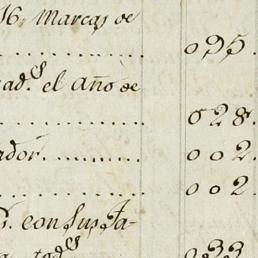 16. Marcas de
........ 095.
ad.s el Año de
........ 028.
ador. ........ 002.
........ 002.
s. con sus Ta-
tad.s 033